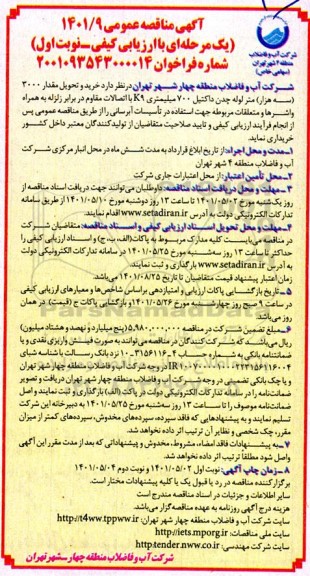 آگهی مناقصه عمومی ۱۴۰۱/۹
(یک مرحله‌ای با ارزیابی کیفی–نوبت اول)
شماره فراخوان ۲۰۰۱۰۹۳۵۴۳۰۰۰۰۱۴
شرکت آب و فاضلاب
منطقه ۴ شهر تهران
(سهامی خاص)
شرکت آب و فاضلاب منطقه چهار شهر تهران در نظر دارد خرید و تحویل مقدار ۳۰۰۰
(سه هزار) متر لوله چدن داکتیل ۷۰۰ میلیمتری K۹ با اتصالات مقاوم در برابر زلزله به همراه
واشرها و متعلقات مربوطه جهت استفاده در تأسیسات آبرسانی را از طریق مناقصه عمومی پس
از انجام فرآیند ارزیابی کیفی و تایید صلاحیت متقاضیان از تولیدکنندگان معتبر داخل کشور
خریداری نماید.
۱–مدت و محل اجراء: از تاریخ ابلاغ قرارداد به مدت شش ماه در محل انبار مرکزی شرکت
آب و فاضلاب منطقه ۴ شهر تهران
۲–محل تأمین اعتبار: از محل اعتبارات جاری شرکت
۳–مهلت و محل دریافت اسناد مناقصه: داوطلبان می‌توانند جهت دریافت اسناد مناقصه از
روز یک‌شنبه مورخ ۱۴۰۱/۰۵/۰۲ تا ساعت ۱۳ روز دوشنبه مورخ ۱۴۰۱/۰۵/۱۰ از طریق سامانه
تدارکات الکترونیکی دولت به آدرس www.setadiran.ir اقدام نمایند.
۴–مهلت و محل تحویل اسناد ارزیابی کیفی و اسناد مناقصه: متقاضیان شرکت
در مناقصه می‌بایست کلیه مدارک مربوط به پاکات(الف، ب، ج) و اسناد ارزیابی کیفی را
حداکثر تا ساعت ۱۳ روز سه‌شنبه مورخ ۱۴۰۱/۰۵/۲۵ در سامانه تدارکات الکترونیکی دولت
به آدرس www.setadiran.ir بارگذاری و ثبت نمایند.
زمان اعتبار پیشنهاد قیمت متقاضیان تا تاریخ ۱۴۰۱/۰۸/۲۵ می‌باشد.
۵–تاریخ بازگشایی پاکات ارزیابی و امتیازدهی براساس شاخص‌ها و معیارهای ارزیابی کیفی
در ساعت ۹ صبح روز چهارشنبه مورخ ۱۴۰۱/۰۵/۲۶ و بازگشایی پاکات ج (قیمت)، در همان
روز می‌باشد.
۶–مبلغ تضمین شرکت در مناقصه ۵,۹۸۰,۰۰۰,۰۰۰ (پنج میلیارد و نهصد و هشتاد میلیون)
ریال می‌باشد که شرکت کنندگان در مناقصه می‌توانند به صورت فیش واریزی نقدی و یا
ضمانتنامه بانکی به شماره حساب
در وجه شرکت آب و فاضلاب منطقه چهار شهر تهران
و یا چک بانکی تضمینی در وجه شرکت آب و فاضلاب منطقه چهار شهر تهران دریافت و تصویر
ضمانت‌نامه را در سامانه تدارکات الکترونیکی دولت در پاکت (الف) بارگذاری و ثبت نمایند و اصل
ضمانت‌نامه موصوف را تا ساعت ۱۳ روز سه‌شنبه مورخ ۱۴۰۱/۰۵/۲۵ به دبیرخانه این شرکت
تسلیم نمایند و به پیشنهادهایی که فاقد سپرده، سپرده‌های مخدوش، سپرده‌های کمتر از میزان
مقرر، چک شخصی و نظایر آن ترتیب اثر داده نخواهد شد.
۷–به پیشنهادات فاقد امضاء، مشروط، مخدوش و پیشنهاداتی که بعد از مدت مقرر این آگهی
واصل شود مطلقا ترتیب اثر داده نخواهد شد.
۸–زمان چاپ آگهی: نوبت اول ۱۴۰۱/۰۵/۰۲ و نوبت دوم ۱۴۰۱/۰۵/۰۴
برگزار کننده مناقصه در رد یا قبول یک یا کلیه پیشنهادات مختار است.
سایر اطلاعات و جزئیات در اسناد مناقصه مندرج است
هزینه درج آگهی روزنامه به عهده مناقصه گزار می‌باشد.
سایت شرکت آب و فاضلاب منطقه چهار شهر تهران: http://t4ww.tppww.ir
سایت ملی مناقصات: http://iets.mporg.ir
سایت شرکت مهندسی: http:tender.nww.co.ir
شرکت آب و فاضلاب منطقه چهار–شهر تهران